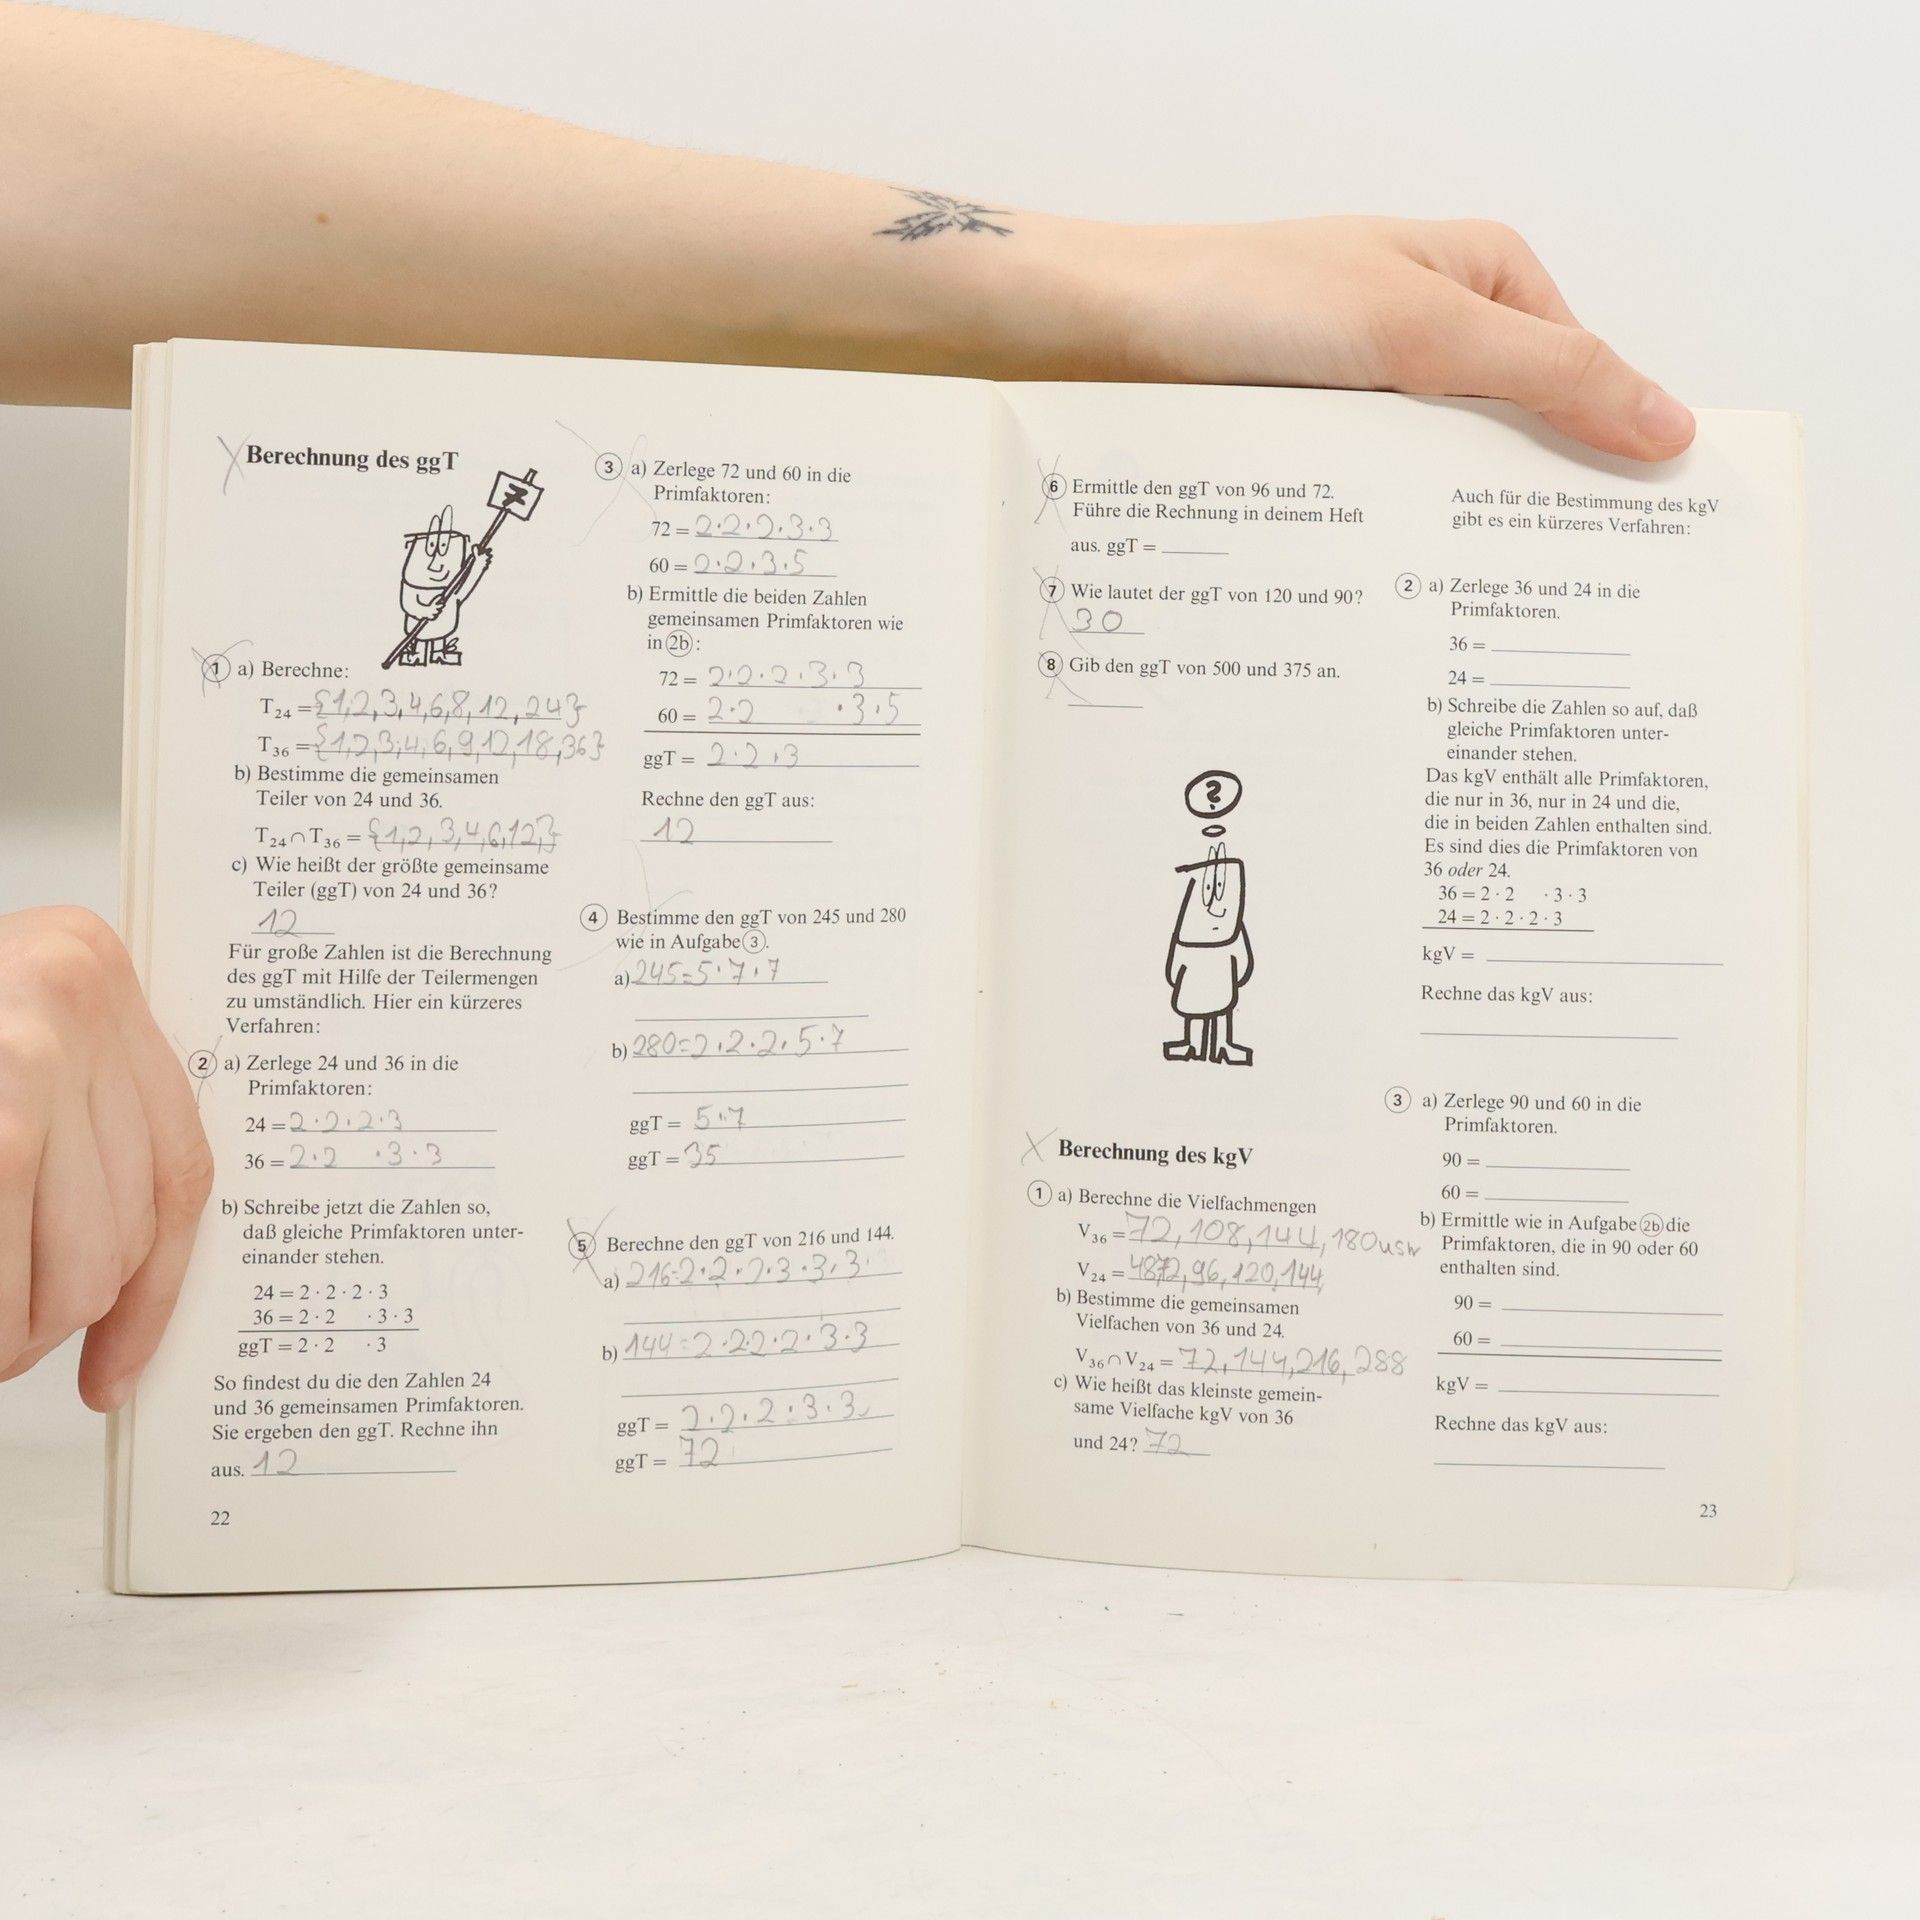 Berechnung des ggT
7
1 a) Berechne:
T24 = {1,2,3,4,6,8,12,24}
T36 = {1,2,3,4,6,9,12,18,36}
b) Bestimme die gemeinsamen
Teiler von 24 und 36.
T24 ∩ T36 = {1,2,3,4,6,12,}
c) Wie heißt der größte gemeinsame
Teiler (ggT) von 24 und 36?
12
Für große Zahlen ist die Berechnung
des ggT mit Hilfe der Teilermengen
zu umständlich. Hier ein kürzeres
Verfahren:
2 a) Zerlege 24 und 36 in die
Primfaktoren:
24 = 2·2·2·3
36 = 2·2 ·3·3
b) Schreibe jetzt die Zahlen so,
daß gleiche Primfaktoren unter-
einander stehen.
24 = 2 · 2 · 2 · 3
36 = 2 · 2 · 3 · 3
ggT = 2 · 2 · 3
So findest du die den Zahlen 24
und 36 gemeinsamen Primfaktoren.
Sie ergeben den ggT. Rechne ihn
aus. 12
22
3 a) Zerlege 72 und 60 in die
Primfaktoren:
72 = 2·2·2·3·3
60 = 2·2·3·5
b) Ermittle die beiden Zahlen
gemeinsamen Primfaktoren wie
in 2b:
72 = 2·2·2·3·3
60 = 2·2 ·3·5
ggT = 2·2·3
Rechne den ggT aus:
12
4 Bestimme den ggT von 245 und 280
wie in Aufgabe 3.
a) 245=5·7·7
b) 280=2·2·2·5·7
ggT = 5·7
ggT = 35
5 Berechne den ggT von 216 und 144.
a) 216=2·2·2·3·3·3
b) 144=2·2·2·2·3·3
ggT = 2·2·2·3·3
ggT = 72
6 Ermittle den ggT von 96 und 72.
Führe die Rechnung in deinem Heft
aus. ggT =
7 Wie lautet der ggT von 120 und 90?
30
8 Gib den ggT von 500 und 375 an.
?
Berechnung des kgV
1 a) Berechne die Vielfachmengen
V36 = 72,108,144,180 usw
V24 = 4872,96,120,144
b) Bestimme die gemeinsamen
Vielfachen von 36 und 24.
V36 ∩ V24 = 72,144,216,288
c) Wie heißt das kleinste gemein-
same Vielfache kgV von 36
und 24? 72
Auch für die Bestimmung des kgV
gibt es ein kürzeres Verfahren:
2 a) Zerlege 36 und 24 in die
Primfaktoren.
36 =
24 =
b) Schreibe die Zahlen so auf, daß
gleiche Primfaktoren unter-
einander stehen.
Das kgV enthält alle Primfaktoren,
die nur in 36, nur in 24 und die,
die in beiden Zahlen enthalten sind.
Es sind dies die Primfaktoren von
36 oder 24.
36 = 2 · 2 · 3 · 3
24 = 2 · 2 · 2 · 3
kgV =
Rechne das kgV aus:
3 a) Zerlege 90 und 60 in die
Primfaktoren.
90 =
60 =
b) Ermittle wie in Aufgabe 2b die
Primfaktoren, die in 90 oder 60
enthalten sind.
90 =
60 =
kgV =
Rechne das kgV aus:
23